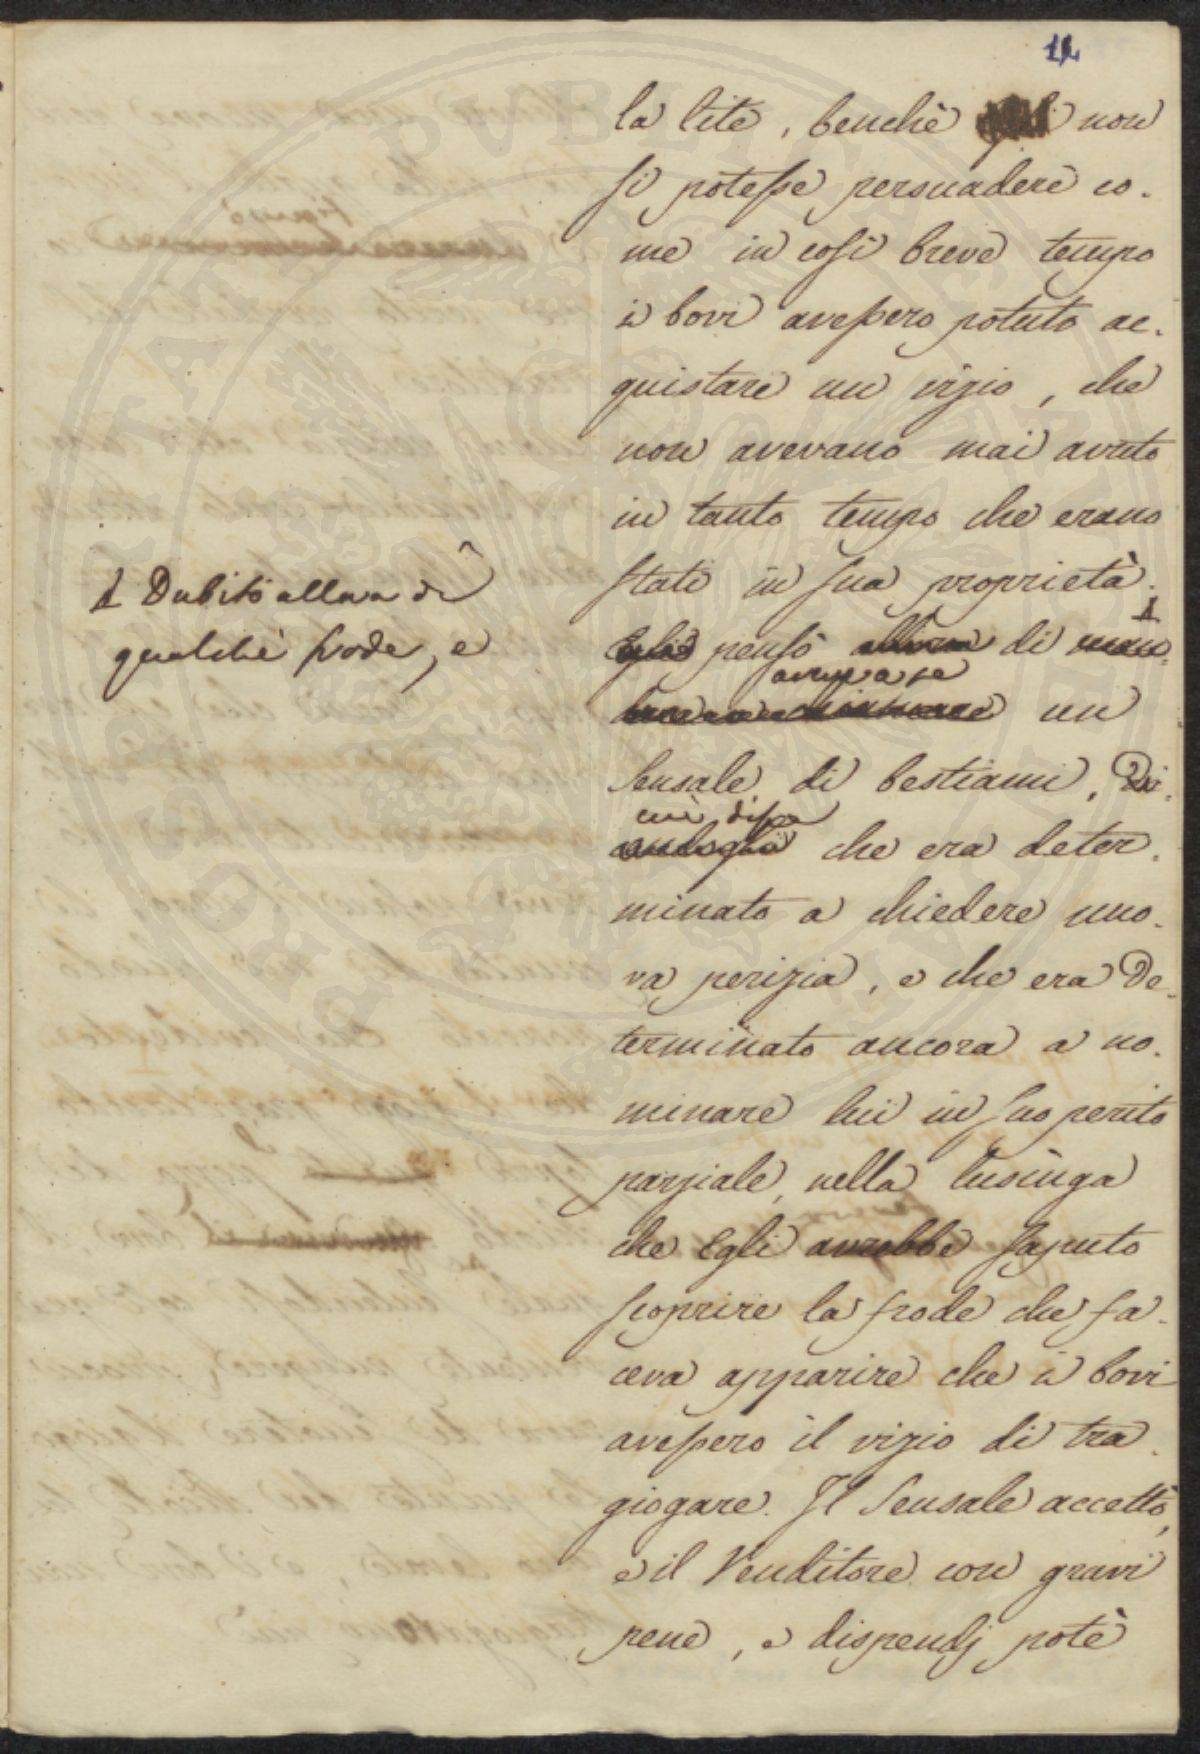 12
la lite, benchè non
si potesse persuadere co-
me in così breve tempo
i bovi avessero potuto ac-
quistare un vizio, che
non avevano mai avuto
in tanto tempo che erano
stati in sua proprietà.
1 Dubitò allora di
qualche frode, e
Egli pensò allora di
avere a se
un
Sensale di bestiami, Di
cui disse
che era deter-
minato a chiedere nuo-
va perizia, e che era De-
terminato ancora a no-
minare lui in suo perito
parziale, nella lusinga
che Egli avrebbe saputo
scoprire la frode che fa-
ceva apparire che i bovi
avessero il vizio di tra-
giogare. Il Sensale accettò,
e il Venditore con gravi
pene, e dispendj potè